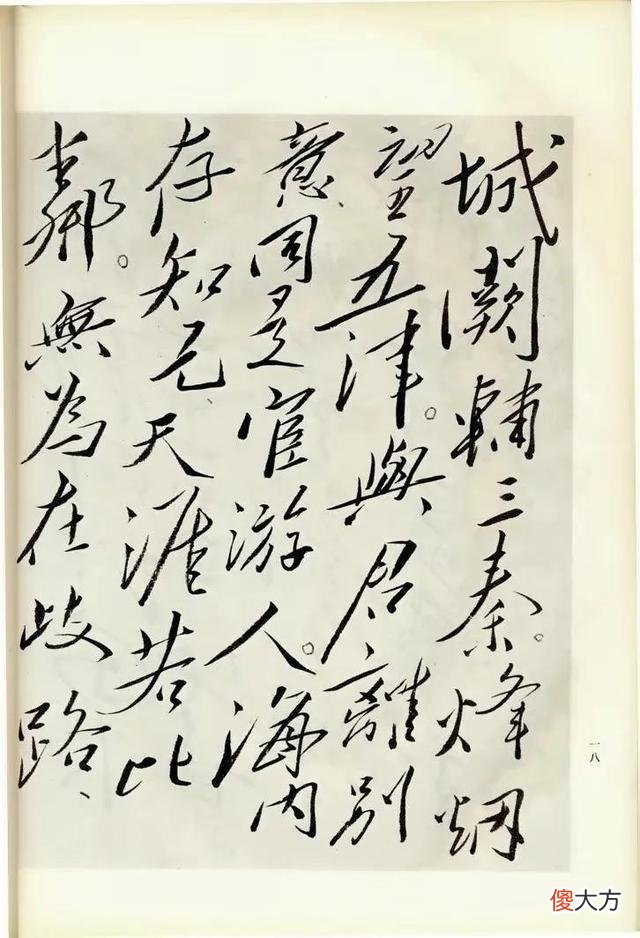 城闕輔三秦。烽烟
望五津。與君離別
意、同是宦游人。海内
存知己、天涯若比
鄰。無為在歧路、
一八
傻大方